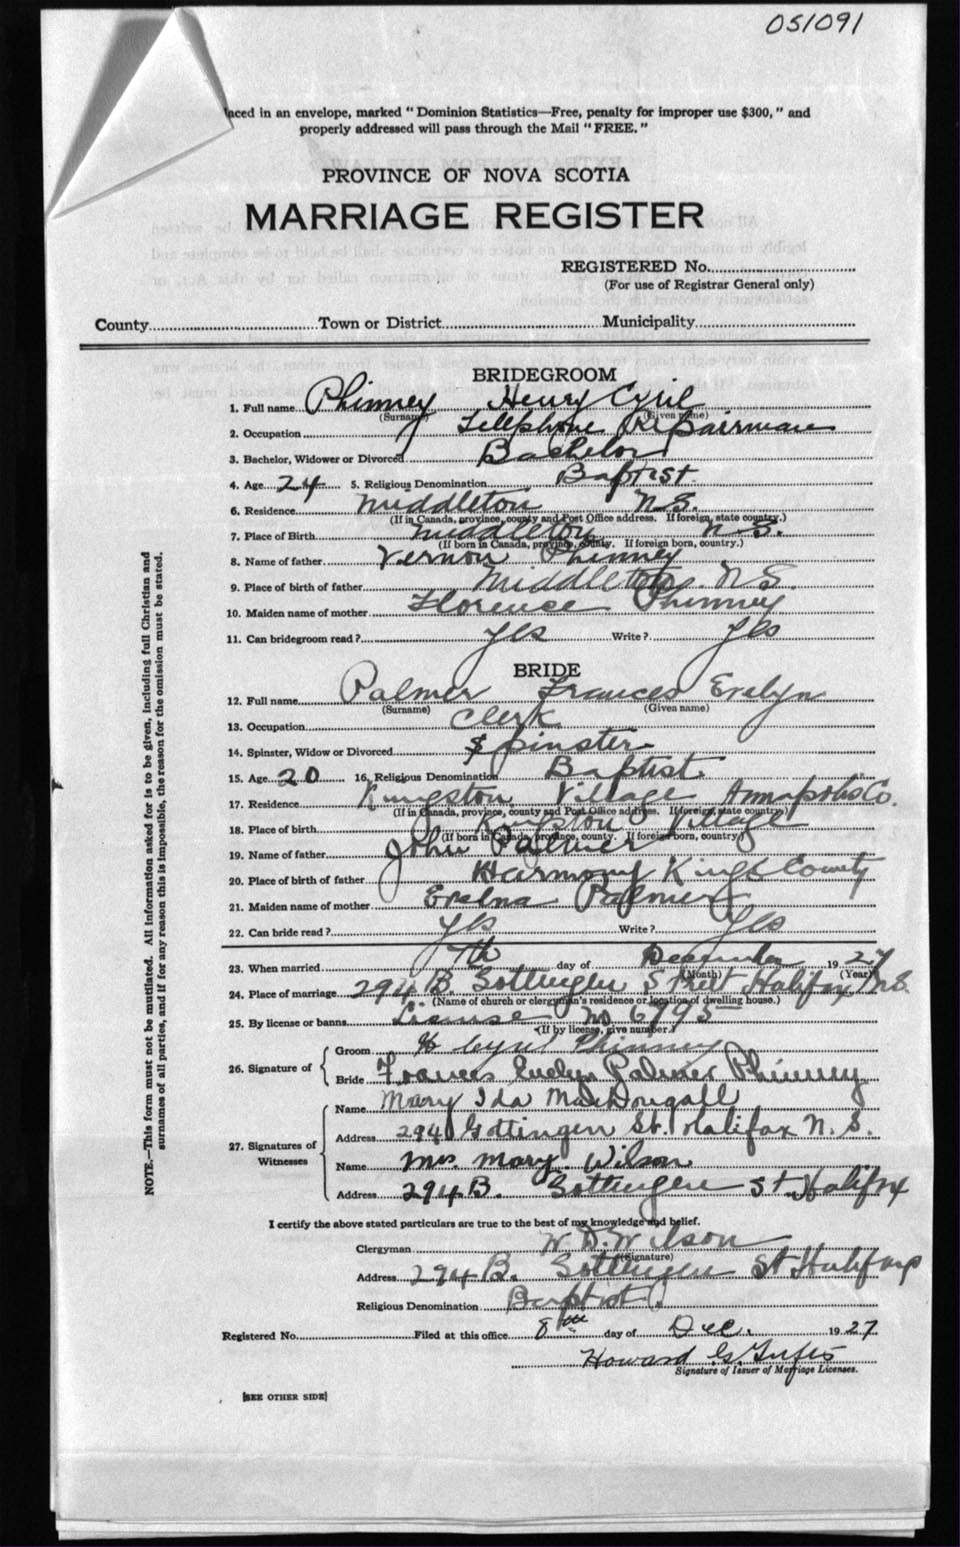 051091
laced in an envelope, marked "Dominion Statistics—Free, penalty for improper use $300," and
properly addressed will pass through the Mail "FREE."
PROVINCE OF NOVA SCOTIA
MARRIAGE REGISTER
REGISTERED No.
(For use of Registrar General only)
County Town or District Municipality
BRIDEGROOM
1. Full name Phinney Henry Cyril
(Surname) (Given name)
2. Occupation Telephone Repairman
3. Bachelor, Widower or Divorced Bachelor
4. Age 24 5. Religious Denomination Baptist
6. Residence Middleton N.S.
(If in Canada, province, county and Post Office address. If foreign, state country.)
7. Place of Birth Middleton N.S.
(If born in Canada, province, county. If foreign born, country.)
8. Name of father Vernon Phinney
9. Place of birth of father Middleton N.S.
10. Maiden name of mother Florence Phinney
11. Can bridegroom read? Yes Write? Yes
BRIDE
12. Full name Palmer Frances Evelyn
(Surname) (Given name)
13. Occupation Clerk
14. Spinster, Widow or Divorced Spinster
15. Age 20 16. Religious Denomination Baptist
17. Residence Kingston Village Annapolis Co.
(If in Canada, province, county and Post Office address. If foreign, state country.)
18. Place of birth Kingston Village
(If born in Canada, province, county. If foreign born, country.)
19. Name of father John Palmer
20. Place of birth of father Harmony Kings County
21. Maiden name of mother Palmer
22. Can bride read? Yes Write? Yes
23. When married 7th day of December 1927
(Month) (Year)
24. Place of marriage 294 B. Gottingen Street Halifax N.S.
(Name of church or clergyman's residence or location of dwelling house.)
25. By license or banns License No 6795
(If by license, give number.)
26. Signature of
Groom H Cyril Phinney
Bride Frances Evelyn Palmer Phinney
27. Signatures of Witnesses
Name Mary Ida MacDougall
Address 294 Gottingen St. Halifax N. S.
Name Mrs. Mary Wilson
Address 294 B. Gottingen St. Halifax
I certify the above stated particulars are true to the best of my knowledge and belief.
Clergyman W. D. Wilson
(Signature)
Address 294 B. Gottingen St Halifax
Religious Denomination Baptist
Registered No. Filed at this office 8th day of Dec. 1927
Howard G.
Signature of Issuer of Marriage Licenses.
[SEE OTHER SIDE]
NOTE.—This form must not be mutilated. All information asked for is to be given, including full Christian and
surnames of all parties, and if for any reason this is impossible, the reason for the omission must be stated.